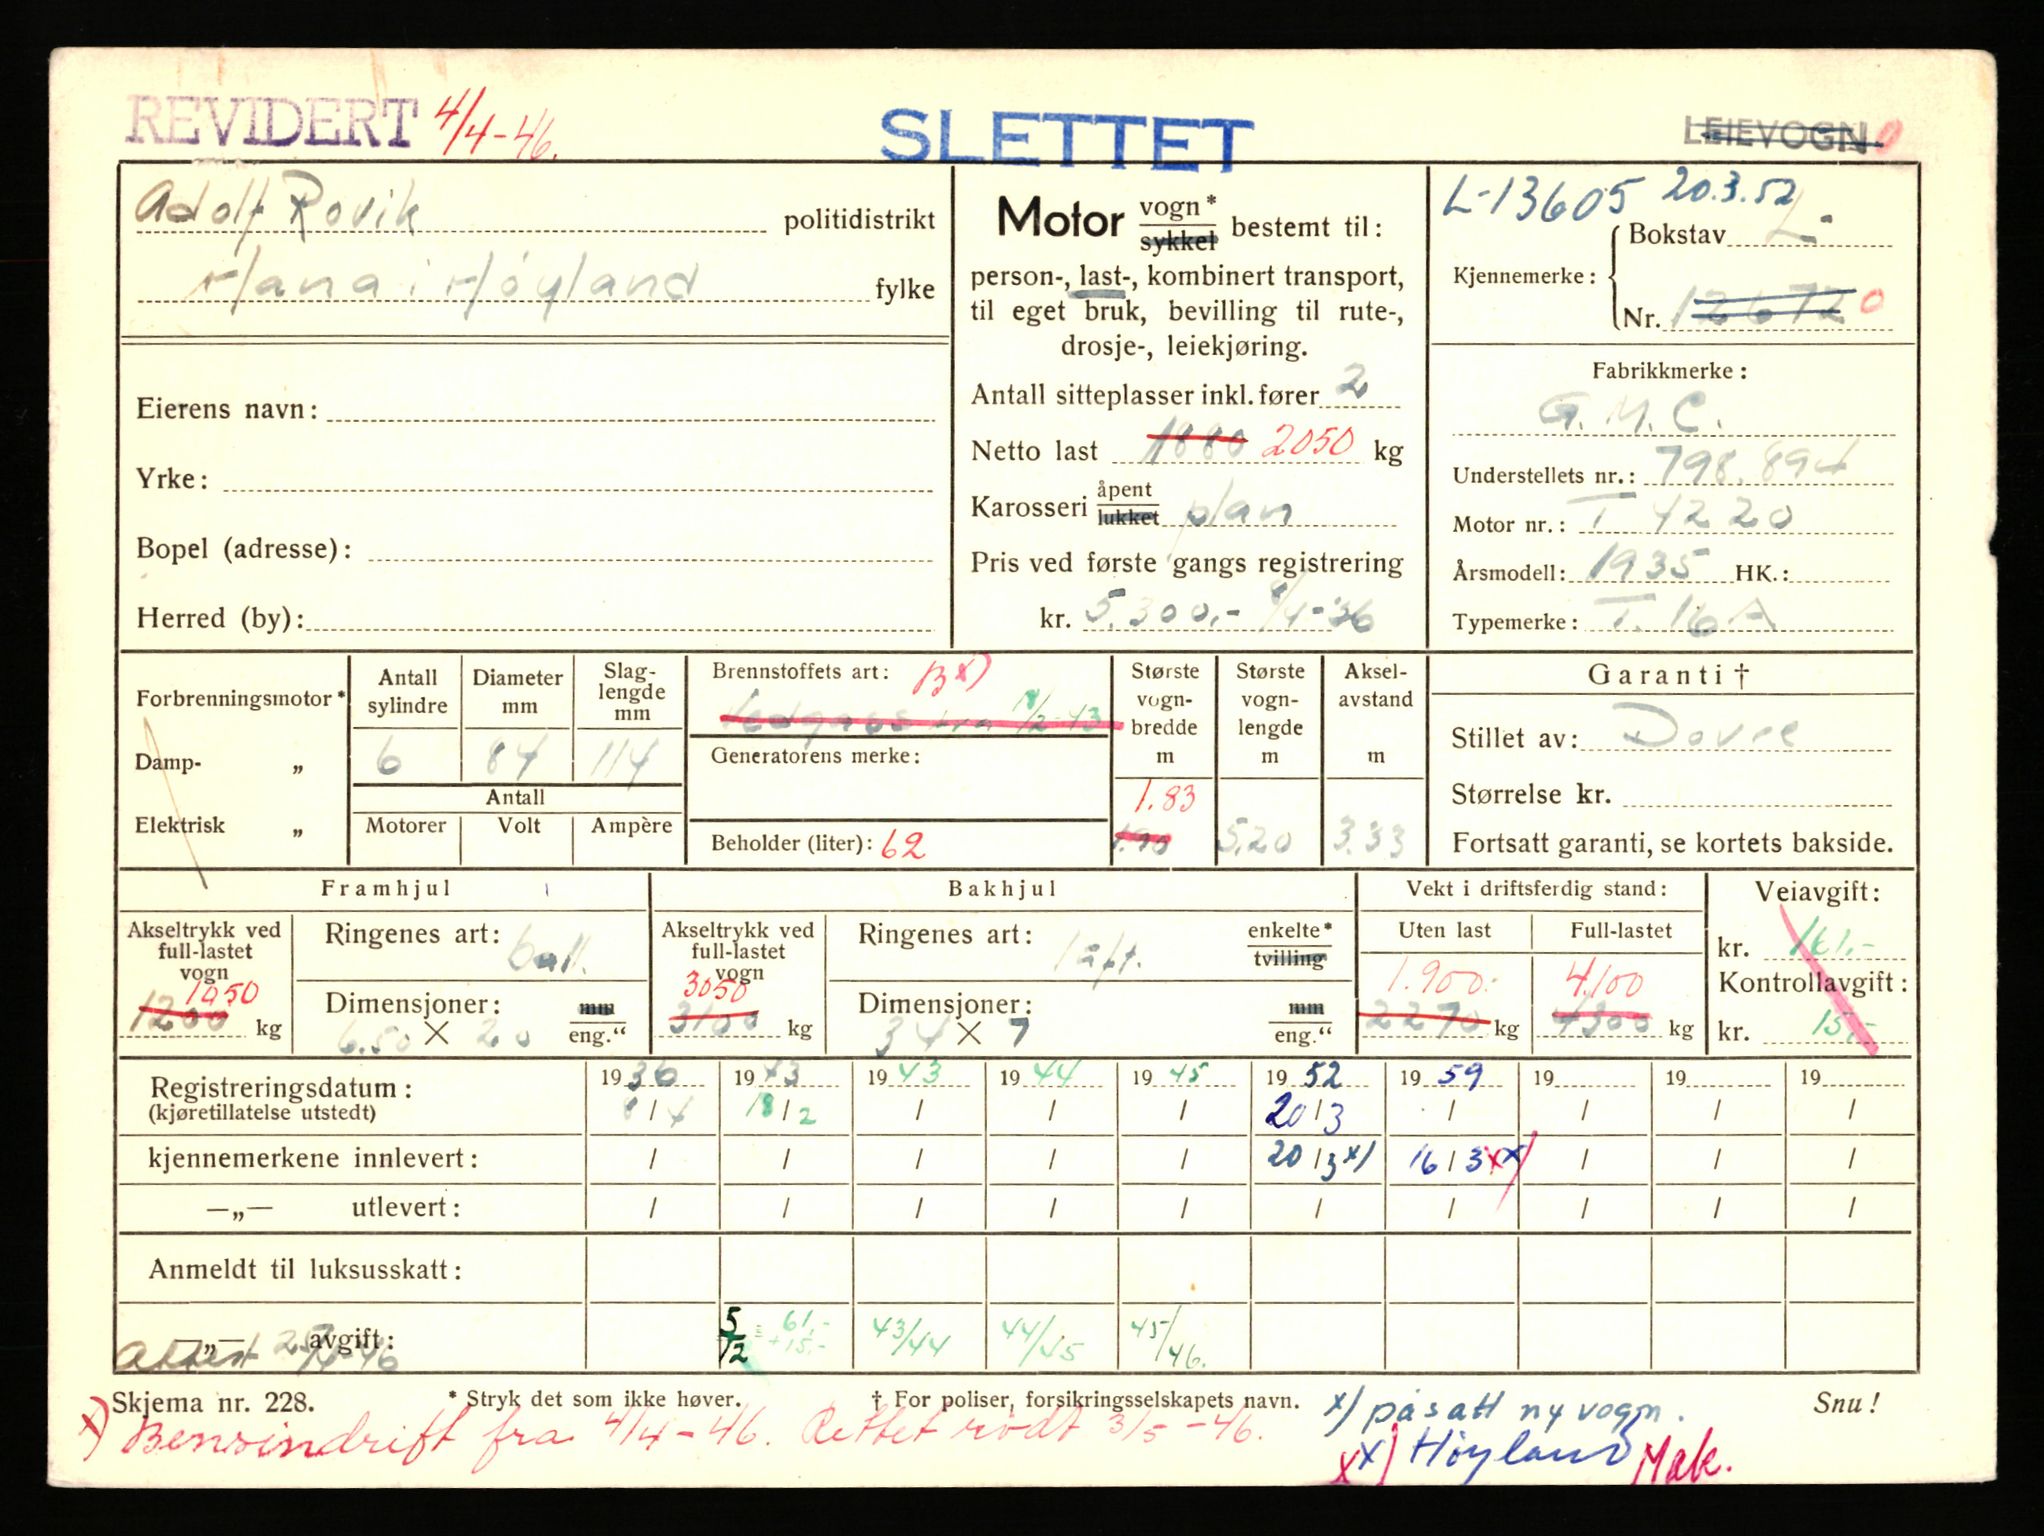 REVIDERT 4/4-46.
SLETTET
LEIEVOGN 0
Adolf Rovik politidistrikt
Hana i Høyland fylke
Eierens navn:
Yrke:
Bopel (adresse):
Herred (by):
Motor vogn* sykkel bestemt til:
person-, last-, kombinert transport,
til eget bruk, bevilling til rute-,
drosje-, leiekjøring.
Antall sitteplasser inkl. fører 2
Netto last 1880 2050 kg
Karosseri åpent lukket plan
Pris ved første gangs registrering
kr. 5.300,- 8/4-36
L-13605 20.3.52
Kjennemerke: Bokstav L-
Nr. 12672 0
Fabrikkmerke:
G.M.C.
Understellets nr.: 798.894
Motor nr.: T 4220
Årsmodell: 1935 HK.:
Typemerke: T.16A
Forbrenningsmotor*
Damp- „
Elektrisk „
Antall sylindre 6
Diameter mm 84
Slag-lengde mm 114
Antall
Motorer Volt Ampère
Brennstoffets art: B x)
Vedgass fra 18/2-43
Generatorens merke:
Beholder (liter): 62
Største vogn-bredde m 1.83 1.90
Største vogn-lengde m 5.20
Aksel-avstand m 3.33
Garanti †
Stillet av: Dovre
Størrelse kr.
Fortsatt garanti, se kortets bakside.
Framhjul
Akseltrykk ved full-lastet vogn 1050 1200 kg
Ringenes art: ball.
Dimensjoner: 6.50 × 20 mm eng."
Bakhjul
Akseltrykk ved full-lastet vogn 3050 3100 kg
Ringenes art: luft. enkelte* tvilling
Dimensjoner: 34 × 7 mm eng."
Vekt i driftsferdig stand:
Uten last 1.900.- 2270 kg
Full-lastet 4.100 4300 kg
Veiavgift:
kr. 161.-
Kontrollavgift:
kr. 15,-
Registreringsdatum: 1936 1943 1943 1944 1945 1952 1959 19 19 19
(kjøretillatelse utstedt) 8/4 18/2 / / / 20/3 / / / /
kjennemerkene innlevert: / / / / / 20/3 x) 16/3 xx) / / /
—„— utlevert: / / / / / / / / / /
Anmeldt til luksusskatt:
—„— avgift: 5/12 61,- +15,- 43/44 44/45 45/46.
Attest 25/4-46
Skjema nr. 228. * Stryk det som ikke høver. † For poliser, forsikringsselskapets navn. Snu!
x) Bensindrift fra 4/4-46. Rettet rødt 3/5-46.
x) påsatt ny vogn.
xx) Høyland Mak.